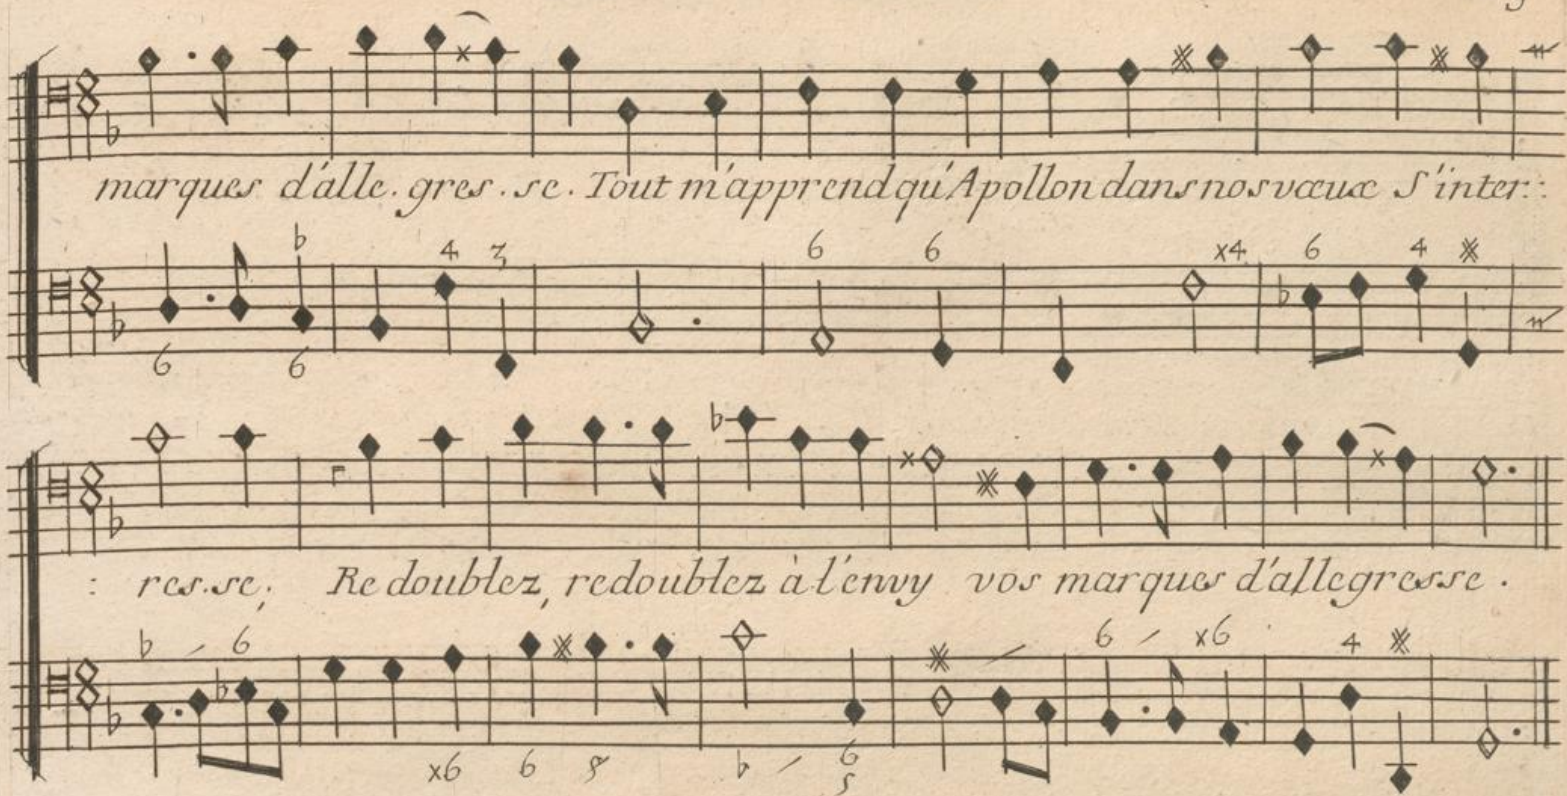 marques d'alle.gres.se. Tout m'apprend qu'Apollon dans nos vœux S'inter::
b 4 3 6 6 x4 6 4
6 6
: res.se; Re doublez, redoublez à l'envy vos marques d'allegresse.
b 6 6 x6 4
x6 6 b 6
5